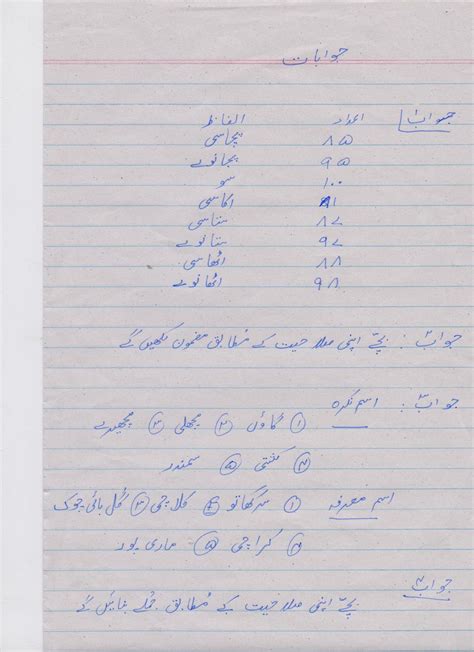 جوابات
جواب۱ اعداد الفاظ
۸۵ پچاسی
۹۵ پچانوے
۱۰۰ سو
۸۱ اکاسی
۸۷ ستاسی
۹۷ ستانوے
۸۸ اٹھاسی
۹۸ اٹھانوے
جواب۲: بچّے اپنی صلاحیت کے مُطابق مضمون لکھیں گے
جواب۳: اسم نکرہ
① گاؤں ② مچھلی ③ مچھیرے
④ کشتی ⑤ سمندر
اسم معرفہ ① سرکھاتو ② کلاچی ③ گُل بائی چوک
④ کراچی ⑤ ماری پور
جواب۴
بچّے اپنی صلاحیت کے مُطابق جُملے بنائیں گے